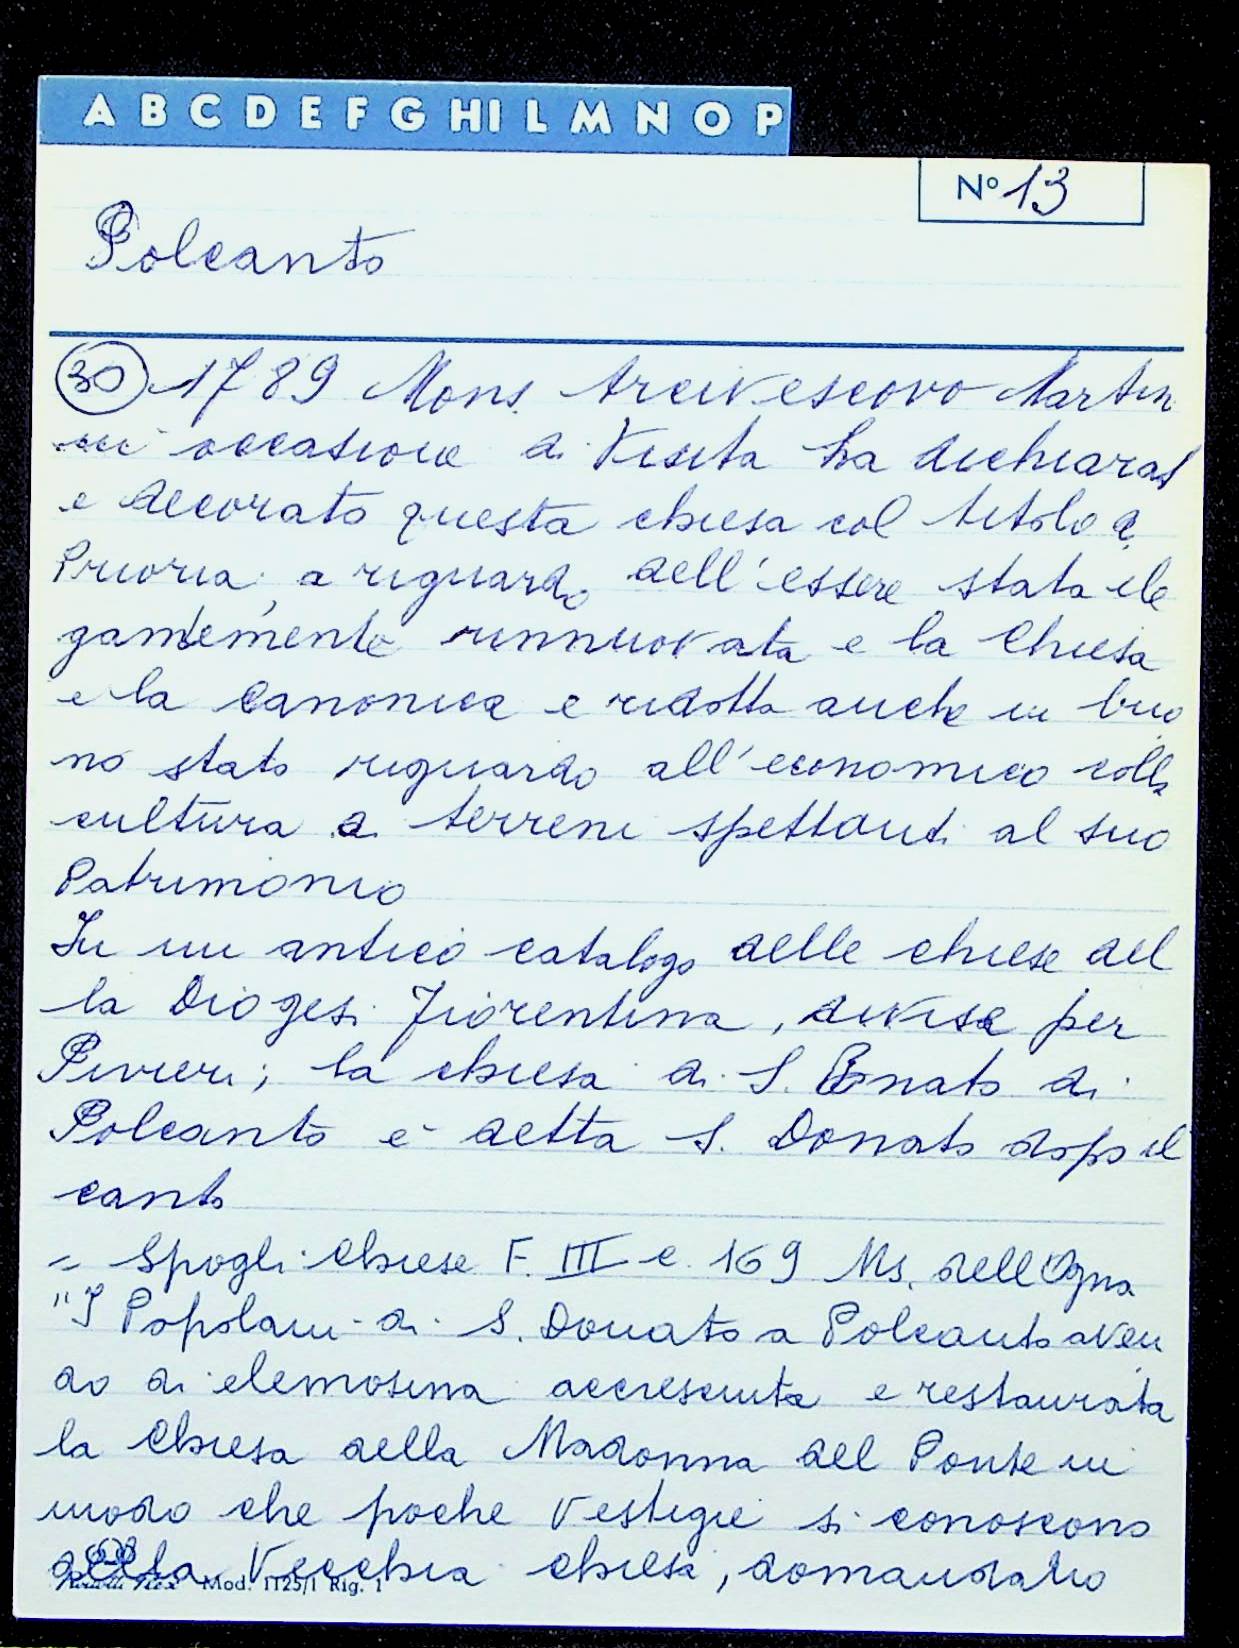 A B C D E F G HI L M N O P
N° 13
Polcanto
30 1789 Mons. Arcivescovo Martin
in occasione di Visita ha dichiarat
e decorato questa chiesa col titolo di
Prioria, a riguardo dell'essere stata ele
gantemente rinnuovata e la Chiesa
e la Canonica e ridotta anche in buo
no stato riguardo all'economico colla
cultura di terreni spettanti al suo
Patrimonio
In un antico catalogo delle chiese del
la Diogesi Fiorentina, divisa per
Pivieri; la chiesa di S. Donato di
Polcanto è detta S. Donato dopo il
canto
= Spogli Chiese F. III c. 169 Ms. dell Ogna
"I Popolani di S. Donato a Polcanto aven
do di elemosina accresciuta e restaurata
la Chiesa della Madonna del Ponte in
modo che poche Vestigie si conoscono
della Vecchia chiesa, domandano
Mod. 1125/1 Rig. 1